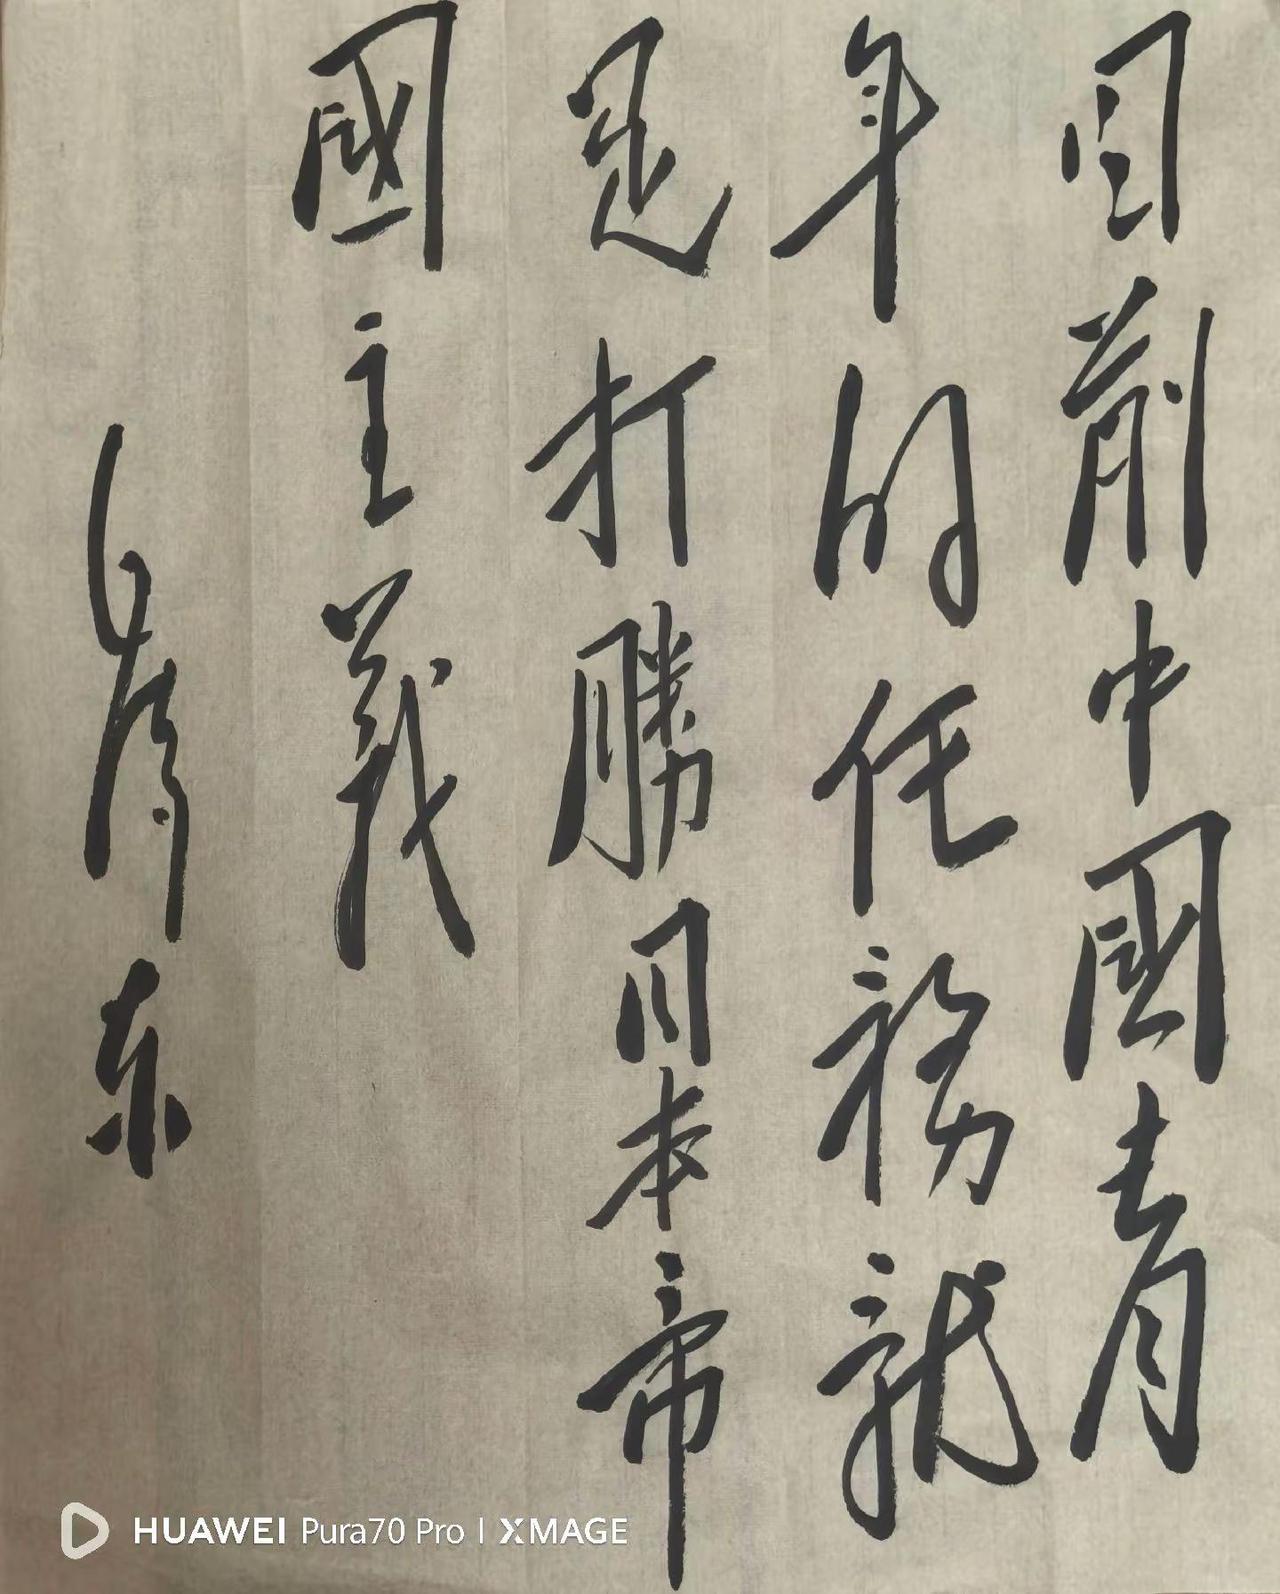 目前中國青
年的任務就
是打勝日本帝
國主義
毛澤东
HUAWEI Pura70 Pro | XMAGE